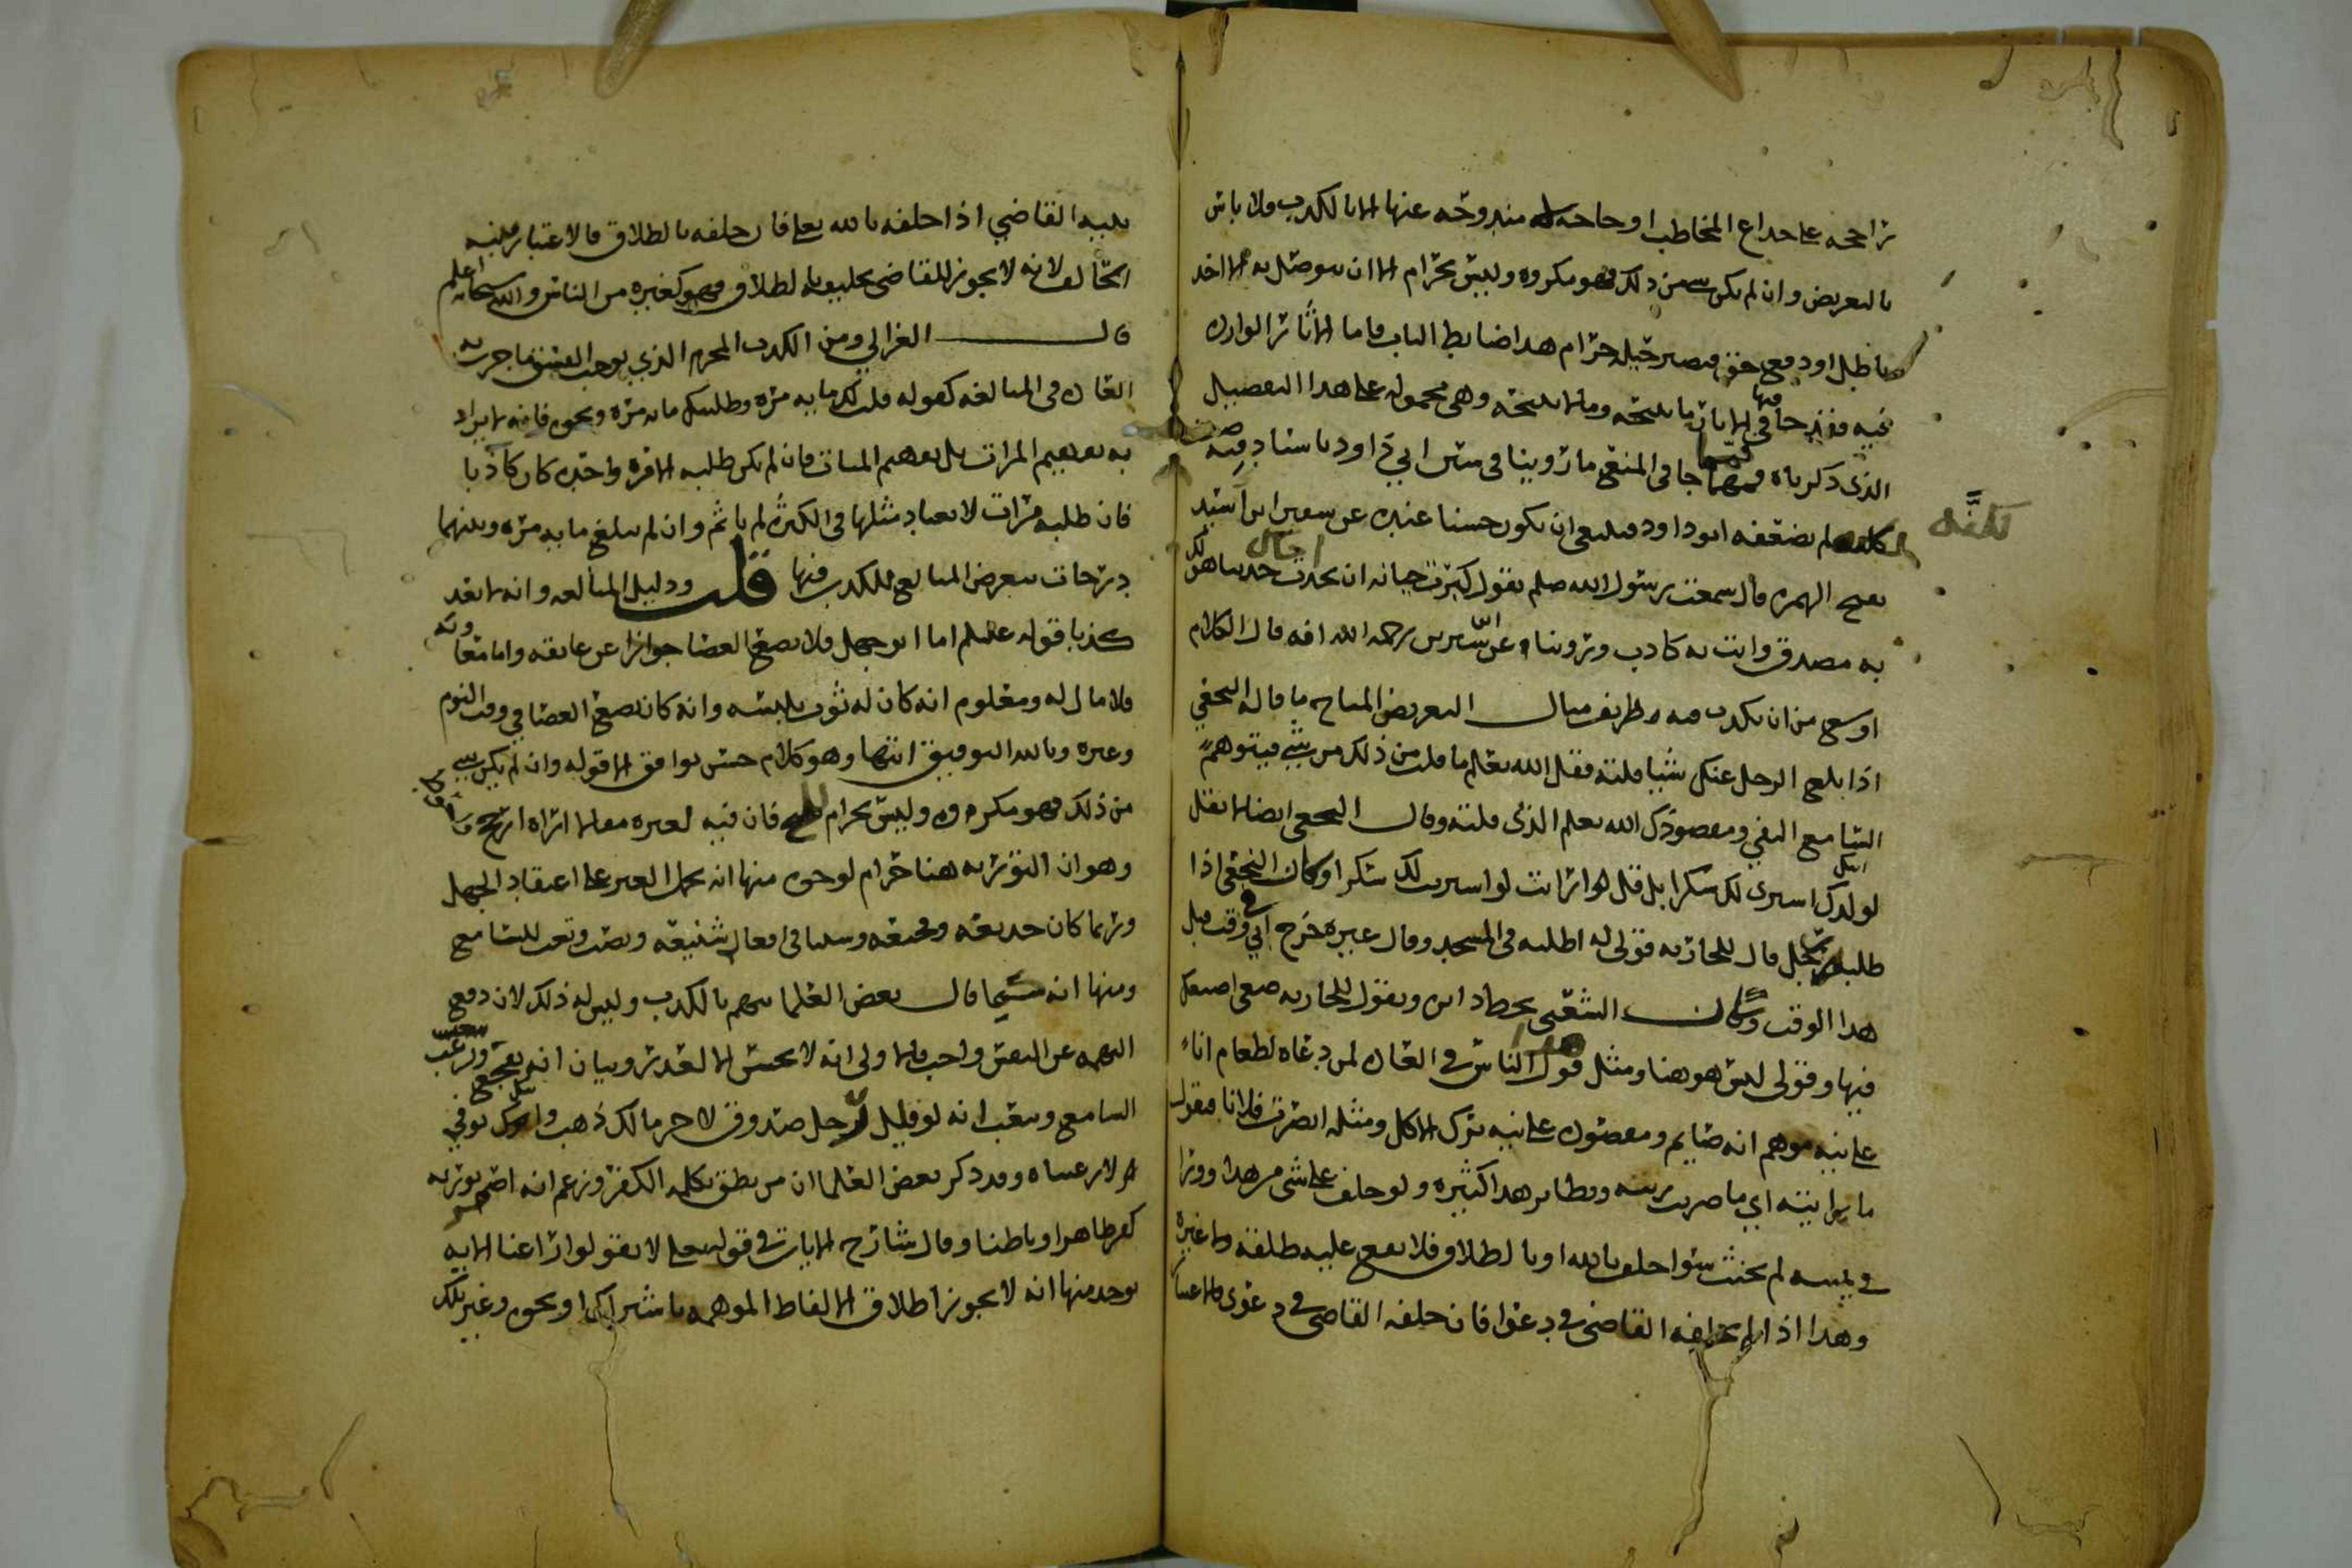 راجحه على خداع المخاطب او حاجه له مندوحه عنها الا بالكذب فلا باس
بالتعريض وان لم يكن شي من ذلك فهو مكروه وليس بحرام الا ان يتوصل به الى اخذ
باطل او دفع حق فيصير حينئذ حرام هذا ضابط الباب فاما الاثار الوارده
فيه فقد جا فيها في الاثار ما يبيحه وما لا يبيحه وهي محموله على هذا التفصيل
الذي ذكرناه فمما جا في المنع ما روينا في سنن ابي داود باسناد فيه ضعف
لكنه لم يضعفه ابو داود فينبغي ان يكون حسنا عنده عن سفين ابن اسيد
بفتح الهمزه قال سمعت رسول الله صلم يقول كبرت خيانه ان تحدث اخاك حديثا هو لك
به مصدق وانت به كاذب وروينا عن ابن سيرين رحمه الله انه قال الكلام
اوسع من ان يكذب فيه ظريف مثال التعريض المباح ما قاله النخعي
اذا بلغ الرجل عنك شيا قلته فقل الله يعلم ما قلت من ذلك من شي فيتوهم
السامع النفي ومقصودك الله يعلم الذي قلته وقال النخعي ايضا لا تقل
لولدك اشتري لك سكرا بل قل له ارايت لو اشتريت لك سكرا وكان النخعي اذا
طلبه رجل قال للجاريه قولي له اطلبه في المسجد وقال غيره خرج ابي في وقت قبل
هذا الوقت وكان الشعبي يخط دايره ويقول للجاريه ضعي اصبعك
فيها وقولي ليس هو هنا ومثل هذا قول الناس في العاده لمن دعاه لطعام انا
على نيه موهم انه صايم ومقصوده على نيه ترك الاكل ومثله ابصرت فلانا فيقول
ما رايته اي ما ضربت ريته ونظاير هذا كثيره ولو حلف على شي من هذا وورا
في يمينه لم يحنث سوا حلف بالله او بالطلاق فلا يقع عليه طلقه ولا غيره
وهذا اذا لم يحلفه القاضي في دعوا فان حلفه القاضي في دعوى فالاعتبار
بنيه القاضي اذا حلفه بالله تعلى فان حلفه بالطلاق فالاعتبار بنيه
الحالف لانه لا يجوز للقاضي تحليفه بالطلاق فهو كغيره من الناس والله سبحانه اعلم
قال الغزالي ومن الكذب المحرم الذي يوجب الفسق ما جرت به
العاده في المبالغه كقوله قلت لك مايه مره وطلبتك مايه مره ونحوه فانه لا يراد
به تفهيم المرات بل تفهيم المبالغه فان لم يكن طلبه الا مره واحده كان كاذبا
فان طلبه مرات لا يعتاد مثلها في الكثره لم ياثم وان لم يبلغ مايه مره وبينهما
درجات يتعرض المبالغ للكذب فيها قلت ودليل المبالغه وانه لا يعد
كذبا قوله عليلم اما ابو جهل فلا يضع العصا جوازا عن عاتقه واما معاويه
فلا مال له ومعلوم انه كان له ثوب يلبسه وانه كان يضع العصا في وقت النوم
وغيره وبالله التوفيق انتهى وهو كلام حسن يوافق الا قوله وان لم يكن شي
من ذلك فهو مكروه وليس بحرام فان فيه لغيره مقالا اراه ارجح
وهو ان التوريه هنا حرام لوجوه منها انه يحمل الغير على اعتقاد الجهل
وربما كان خديعه وسببا في افعال شنيعه للسامع
ومنها انه كما قال بعض العلما يتهم بالكذب وليس له ذلك لان دفع
التهمه عن النفس واجب
السامع وتعب انه لو قيل لرجل صدوق لاخر مالك ذهب
وقد ذكر بعض العلما ان من نطق بكلمه الكفر وزعم انه اضمر توريه
كفر ظاهرا وباطنا وقال شارح الايات في قوله تعلى لا تقولوا راعنا الايه
يوخذ منها انه لا يجوز اطلاق الالفاظ الموهمه باشتراك او نحوه وغير ذلك